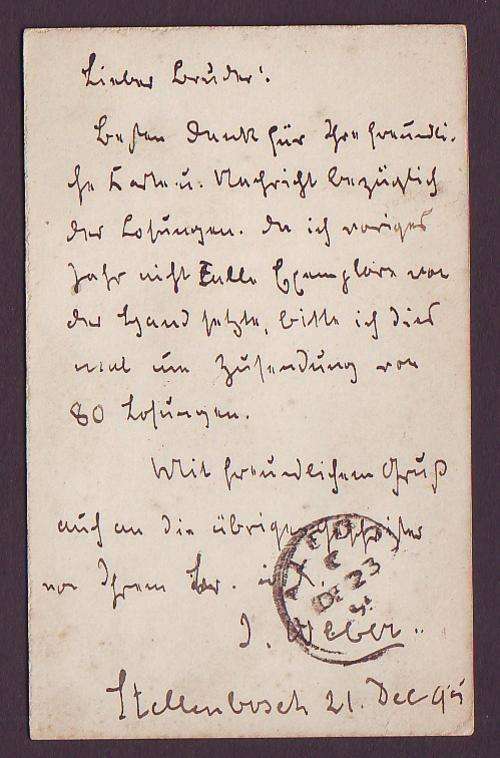 Lieber Bruder!
Besten Dank für Ihre freundli-
che Karte u. Nachricht bezüglich
der Losungen. Da ich voriges
Jahr nicht alle Exemplare von
der Hand setzte, bitte ich dies
mal um Zusendung von
80 Losungen.
Mit freundlichem Gruß
auch an die übrigen Geschwister
von Ihrem Br. i.
J. Weber.
Stellenbosch 21. Dec 95
DE 23